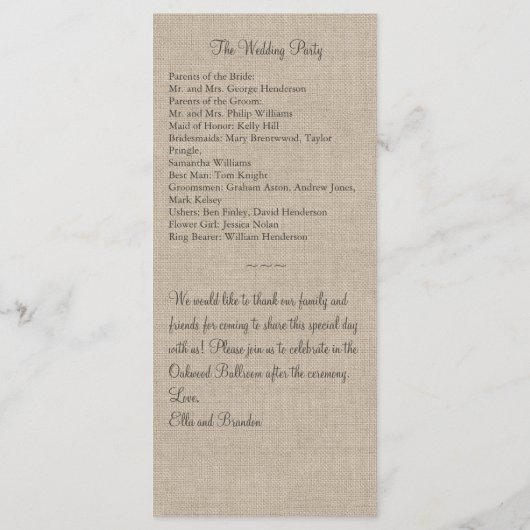 The Wedding Party
Parents of the Bride:
Mr. and Mrs. George Henderson
Parents of the Groom:
Mr. and Mrs. Philip Williams
Maid of Honor: Kelly Hill
Bridesmaids: Mary Brentwwod, Taylor
Pringle,
Samantha Williams
Best Man: Tom Knight
Groomsmen: Graham Aston, Andrew Jones,
Mark Kelsey
Ushers: Ben Finley, David Henderson
Flower Girl: Jessica Nolan
Ring Bearer: William Henderson
~~~
We would like to thank our family and
friends for coming to share this special day
with us! Please join us to celebrate in the
Oakwood Ballroom after the ceremony.
Love,
Ella and Brandon